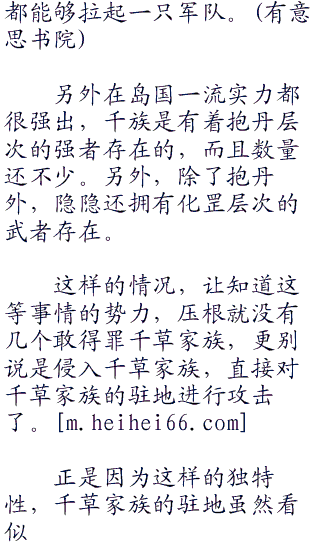 都能够拉起一只军队。(有意
思书院)
另外在岛国一流实力都
很强出，千族是有着抱丹层
次的强者存在的，而且数量
还不少。另外，除了抱丹
外，隐隐还拥有化罡层次的
武者存在。
这样的情况，让知道这
等事情的势力，压根就没有
几个敢得罪千草家族，更别
说是侵入千草家族，直接对
千草家族的驻地进行攻击
了。[m.heihei66.com]
正是因为这样的独特
性，千草家族的驻地虽然看
似